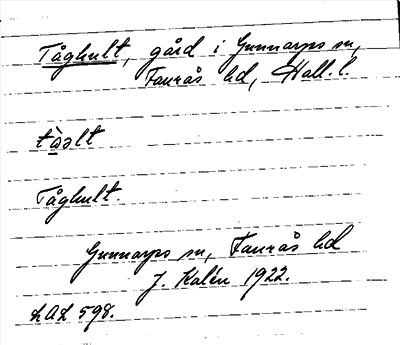 Tåghult, gård i Gunnarps sn,
Faurås hd, Hall. l.
tå̀əlt
Tåghult.
Gunnarps sn, Faurås hd
J. Kalén 1922.
LAL 598.